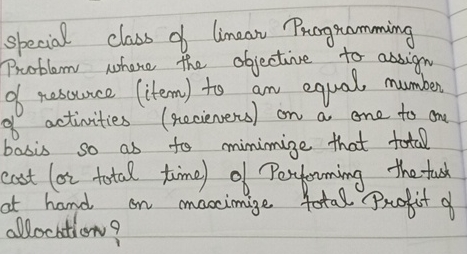 special class of linear Programming
Problem where the objective to assign
of resource (item) to an equal number
of activities (recievers) on a one to one
basis so as to minimize that total
cost (or total time) of Performing the task
at hand on maximize total Profit of
allocation?